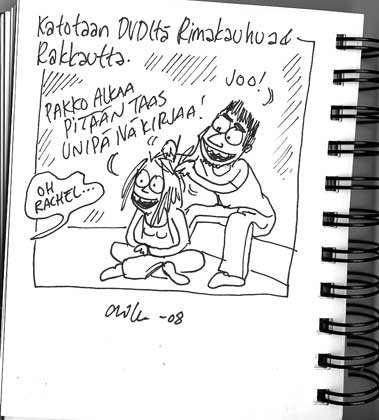 Katotaan DVDltä Rimakauhua &
Rakkautta.
JOO!
PAKKO ALKAA
PITÄÄN TAAS
UNIPÄIVÄKIRJAA!
OH
RACHEL...
-08